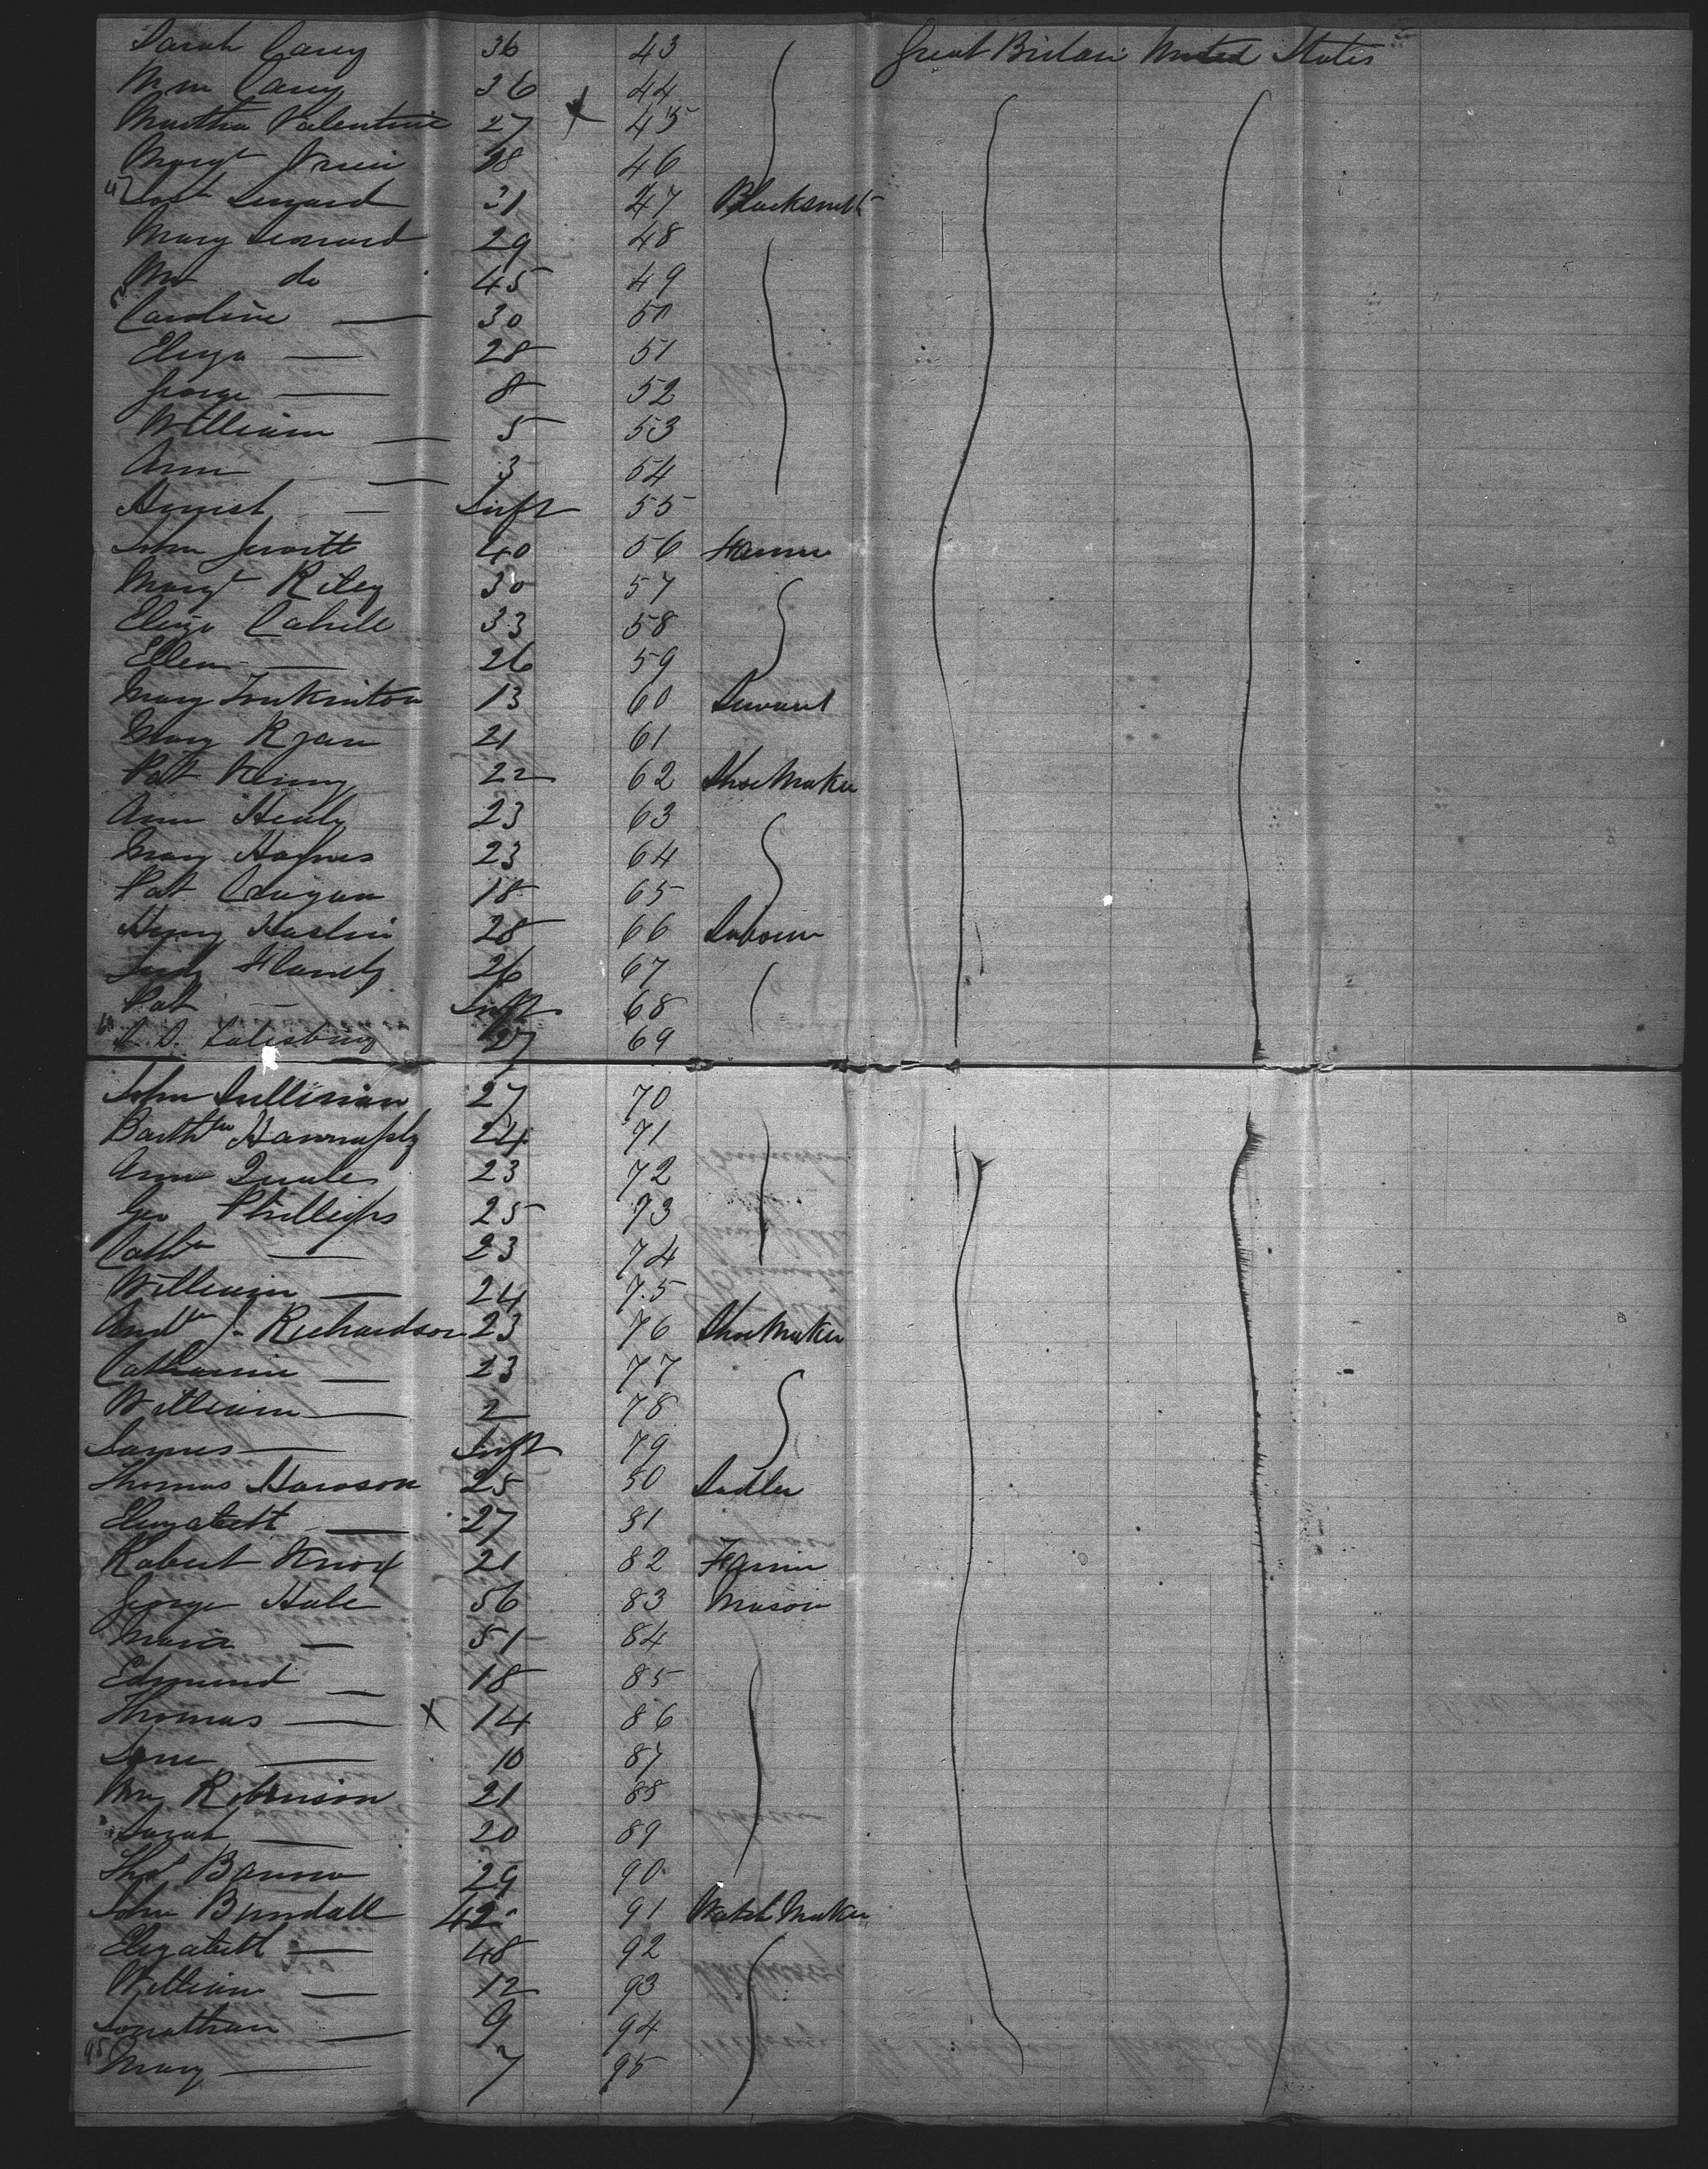 Sarah Carey 36 43 Great Britain United States
Wm Carey 36 44
Martha Valentine 27 x 45
Margt 28 46
47 Leonard 31 47 Blacksmith
Mary Leonard 29 48
do 45 49
Caroline — 30 50
Eliza — 28 51
George — 8 52
William — 5 53
Ann — 3 54
— Inft 55
John 40 56 Farmer
Margt Riley 30 57
Eliza Cahill 33 58
Ellen — 26 59
Mary 13 60 Servant
Mary Ryan 21 61
Pat Kenny 22 62 Shoe Maker
Ann Healy 23 63
Mary Haynes 23 64
Pat 18 65
Henry 28 66 Laborer
26 67
Pat — Inft 68
Salisbury 27 69
John Sullivan 27 70
Barthlw 24 71
Ann Quale 23 72
Geo Phillips 25 73
Cathn — 23 74
William — 24 75
J. Richardson 23 76 Shoe Maker
Catharine — 23 77
William — 2 78
James — Inft 79
Thomas Hawson 25 80 Sadler
Elizabeth — 27 81
Robert Knox 21 82 Farmer
George Hale 56 83 Mason
Maria — 51 84
Edmund — 18 85
Thomas — x 14 86
Jane — 10 87
Wm Robinson 21 88
Sarah — 20 89
Thos 29 90
John Bundall 42 91 Watch Maker
Elizabeth — 48 92
William — 12 93
Jonathan — 9 94
95 Mary — 7 95